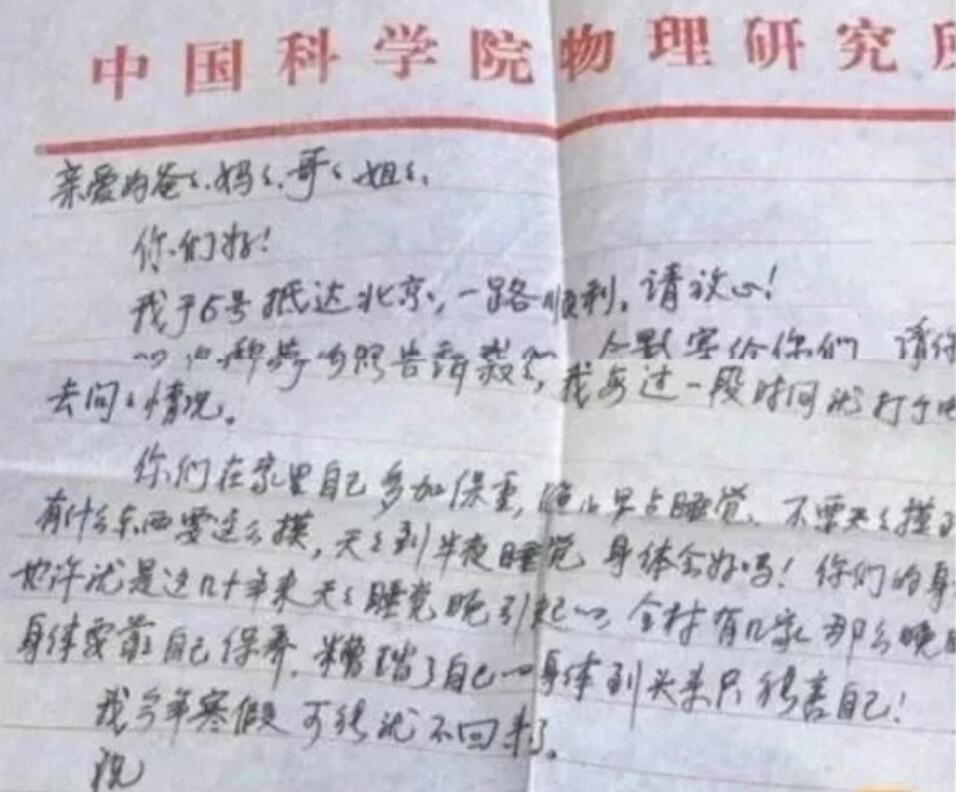 中国科学院物理研究
亲爱的爸々、妈々、哥々姐々、
你们好!
我于6号抵达北京,一路顺利,请放心!
告诉叔々, 会默写给你们 请
我每过一段时间就打个电
去问々情况。
你们在家里自己多加保重,晚上早点睡觉、不要天々摸
有什么东西要这么摸,天々到半夜睡觉 身体会好吗!你们的身
也许就是这几十年来天々睡觉晚引起的,全村有几家那么晚
身体要靠自己保养,糟蹋了自己的身体到头来只能害自己!
我今年寒假可能就不回来了。
祝